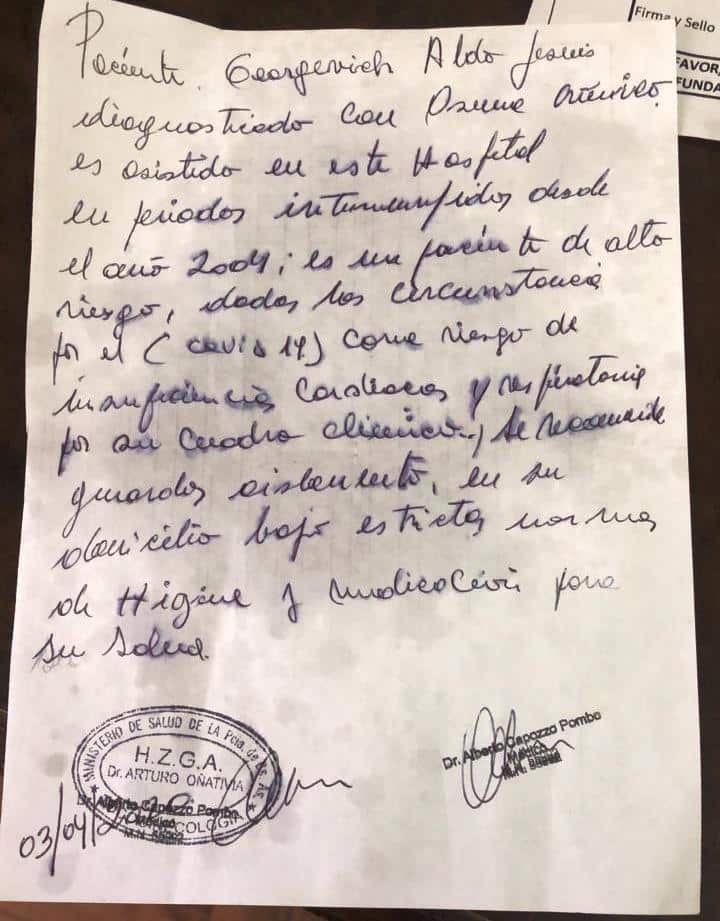 Firma y Sello
FAVOR,
FUNDA
Paciente. Georgevich Aldo Jesus
diagnosticado con Asma cronico.
es asistido en este Hospital
en periodos interrumpidos desde
el año 2004; es un paciente de alto
riesgo, dadas las circunstancia
por el (covid 19) corre riesgo de
insuficiencia Cardiaca y respiratoria
por su cuadro clinico, se recomienda
guardar aislamiento, en su
domicilio bajo estrictas normas
de Higiene y medicación para
su salud.
MINISTERIO DE SALUD DE LA Pcia. de Bs. As.
H.Z.G.A.
Dr. ARTURO OÑATIVIA
Dr. Alberto Capozzo Pombo
Médico
M.N.
03/04/
Dr. Alberto Capozzo Pombo
MÉDICO
M.N.